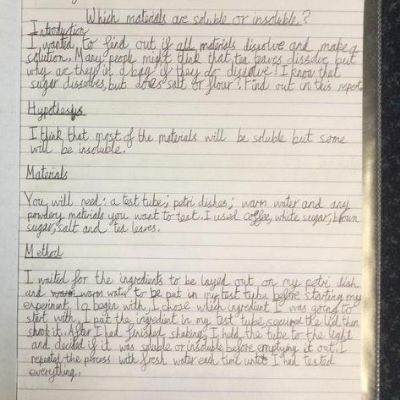 Which materials are soluble or insoluble?
Introduction
I wanted to find out if all materials dissolve and make a
solution. Many people might think that tea leaves dissolve but
why are they in a bag if they do dissolve! I know that
sugar dissolves, but does salt or flour? Find out in this report
Hypothesys
I think that most of the materials will be soluble but some
will be insoluble.
Materials
You will need: a test tube; petri dishes; warm water and any
powdery materials you want to test. I used coffee, white sugar, brown
sugar, salt and tea leaves.
Method
I waited for the ingredients to be layed out on my petri dish
and warm water to be put in my test tube before starting my
experiment. To begin with, I chose which ingredient I was going to
start with. I put the ingredient in my test tube, secured the lid then
shook it. After I had finished shaking, I held the tube to the light
and decided if it was soluble or insoluble before emptying it out. I
repeated the process with fresh water each time until I had tested
everything.